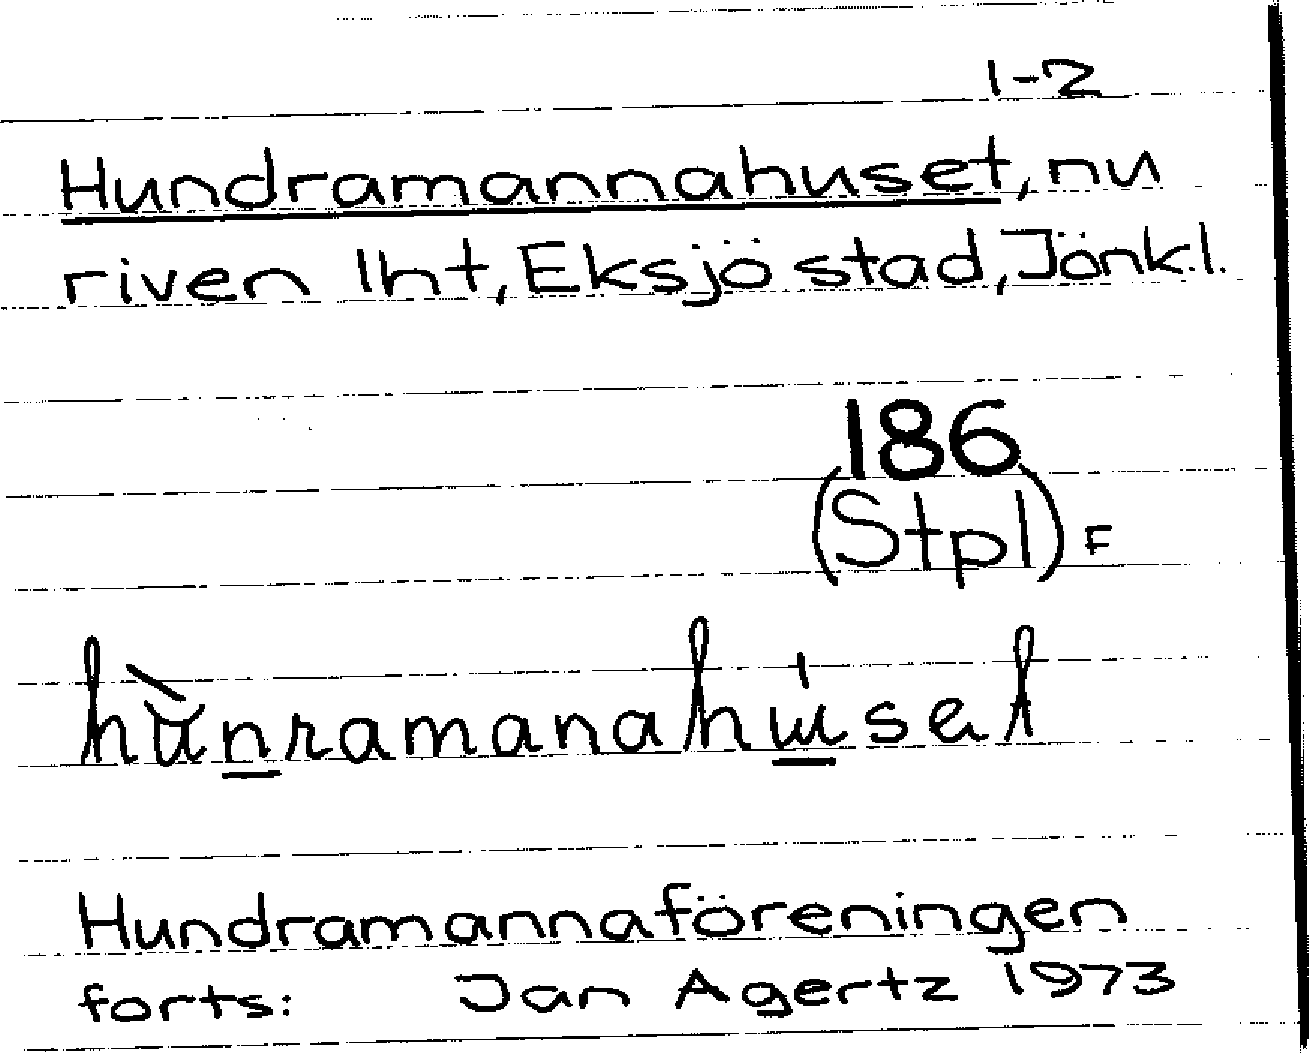 1-2
Hundramannahuset, nu
riven lht, Eksjö stad, Jönk.l.
186
(Stpl) F
hùnramanahúsel
Hundramannaföreningen
forts: Jan Agertz 1973